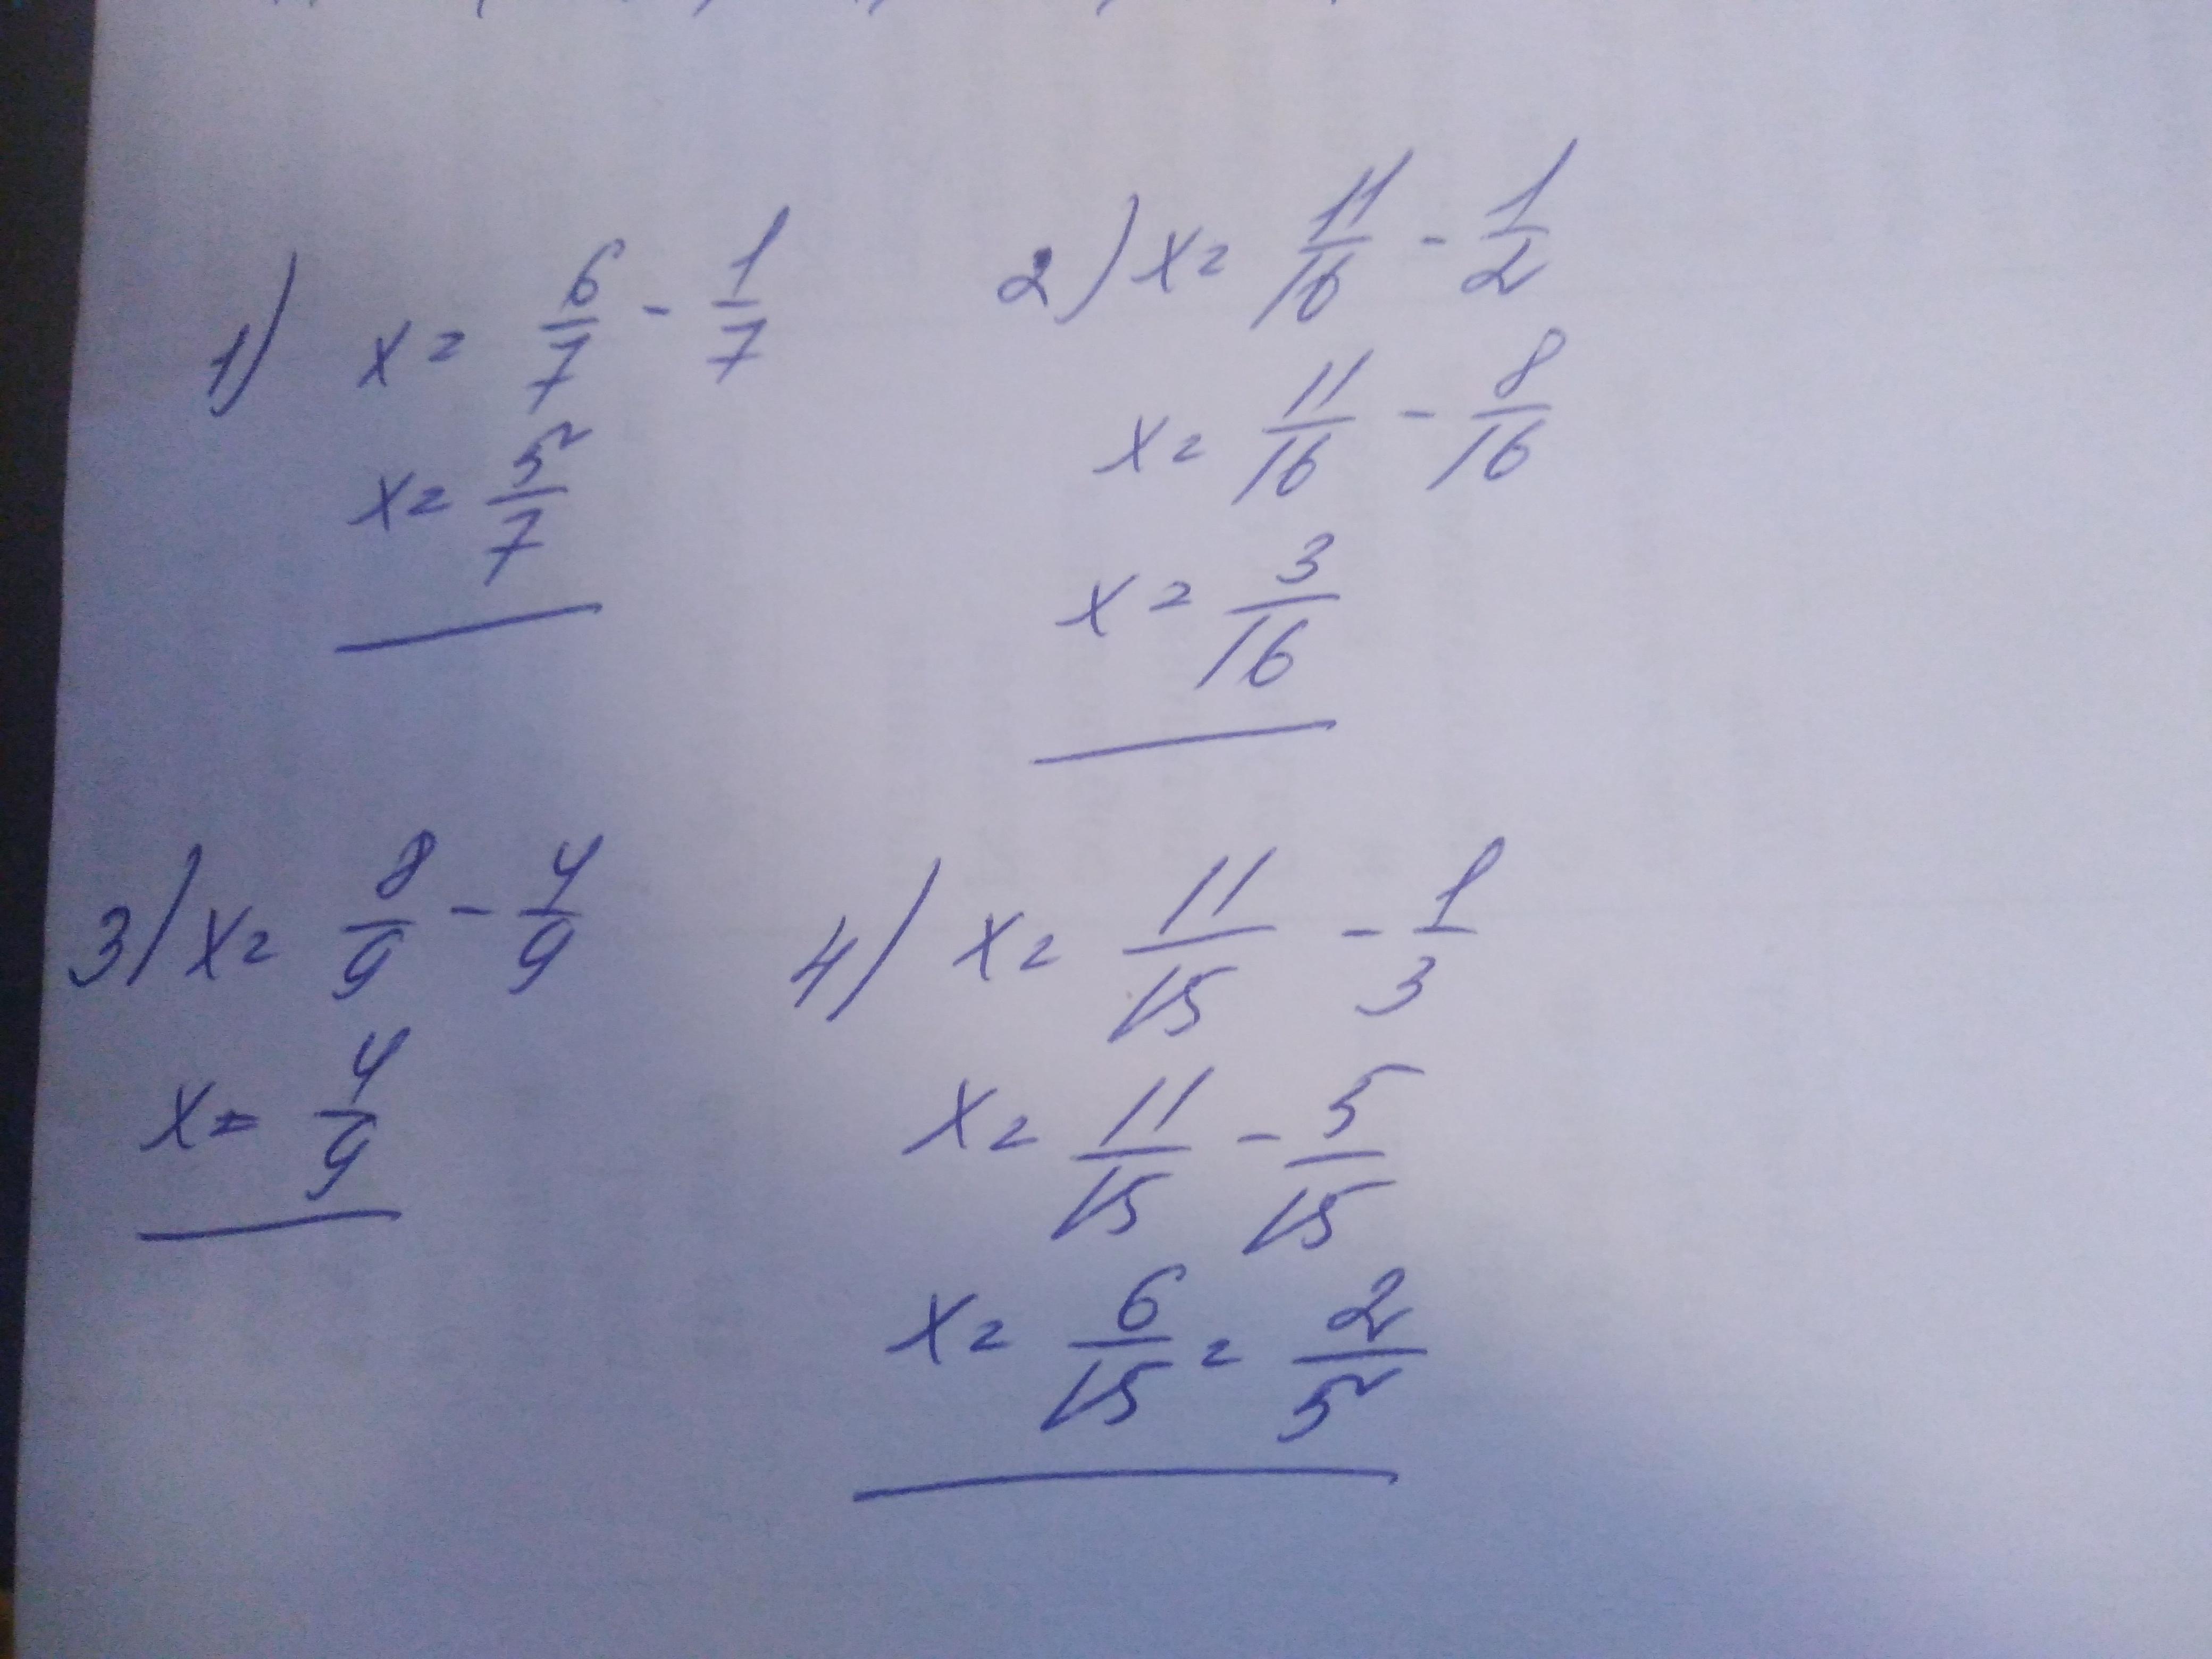 1) x = 6/7 - 1/7
x = 5/7
2) x = 11/16 - 1/2
x = 11/16 - 8/16
x = 3/16
3) x = 8/9 - 4/9
x = 4/9
4) x = 11/15 - 1/3
x = 11/15 - 5/15
x = 6/15 = 2/5